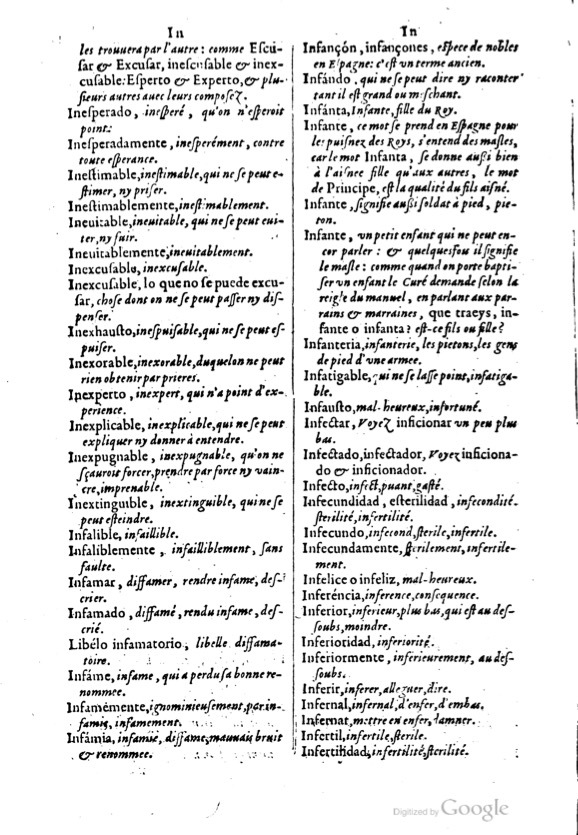 In
les trouuera par l'autre: comme Escu-
sar & Excusar, inescusable & inex-
cusable: Esperto & Experto, & plu-
sieurs autres auec leurs composez.
Inesperado, inesperé, qu'on n'esperoit
point.
Inesperadamente, inesperément, contre
toute esperance.
Inestimable, inestimable, qui ne se peut e-
stimer, ny priser.
Inestimablemente, inestimablement.
Ineuitable, ineuitable, qui ne se peut eui-
ter, ny fuir.
Ineuitablemente, ineuitablement.
Inexcusablo, inexcusable.
Inexcusable, lo que no se puede excu-
sar, chose dont on ne se peut passer ny dis-
penser.
Inexhausto, inespuisable, qui ne se peut es-
puiser.
Inexorable, inexorable, duquel on ne peut
rien obtenir par prieres.
Inexperto, inexpert, qui n'a point d'ex-
perience.
Inexplicable, inexplicable, qui ne se peut
expliquer ny donner à entendre.
Inexpugnable, inexpugnable, qu'on ne
sçauroit forcer, prendre par force ny vain-
cre, imprenable.
Inextinguible, inextinguible, qui ne se
peut esteindre.
Infalible, infaillible.
Infaliblemente, infailliblement, sans
faulte.
Infamar, diffamer, rendre infame, des-
crier.
Infamado, diffamé, rendu infame, des-
crié.
Libélo infamatorio, libelle diffama-
toire.
Infáme, infame, qui a perdu sa bonne re-
nommee.
Infamémente, ignominieusement, par in-
famie, infamement.
Infámia, infamie, diffame, mauuais bruit
& renommee.
In
Infançón, infançones, espece de nobles
en Espagne: c'est vn terme ancien.
Infándo, qui ne se peut dire ny raconter
tant il est grand ou meschant.
Infánta, Infante, fille du Roy.
Infante, ce mot se prend en Espagne pour
les puisnez des Roys, s'entend des masles,
car le mot Infanta, se donne aussi bien
à l'aisnee fille qu'aux autres, le mot
de Principe, est la qualité du fils aisné.
Infante, signifie aussi soldat à pied, pie-
ton.
Infante, vn petit enfant qui ne peut en-
cor parler: & quelquesfou il signifie
le masle: comme quand on porte bapti-
ser vn enfant le Curé demande selon la
reigle du manuel, en parlant aux par-
rains & marraines, que traeys, in-
fante o infanta? est-ce fils ou fille?
Infanteria, infanterie, les pietons, les gens
de pied d'vne armee.
Infatigable, qui ne se lasse point, infatiga-
ble.
Infausto, mal-heureux, infortuné.
Infectar, Voyez inficionar vn peu plus
bas.
Infectado, infectador, Voyez inficiona-
do & inficionador.
Infecto, infect, puant, gasté.
Infecundidad, esterilidad, infecondité.
sterilité, infertilité.
Infecundo, infecond, sterile, infertile.
Infecundamente, sterilement, infertile-
ment.
Infelice o infeliz, mal-heureux.
Inferéncia, inference, consequence.
Inferior, inferieur, plus bas, qui est au des-
soubs, moindre.
Inferioridad, inferiorité.
Inferiormente, inferieurement, au des-
soubs.
Inferir, inferer, alleguer, dire.
Infernal, infernal, d'enfer, d'embas.
Infernar, mettre en enfer, damner.
Infertil, infertile, sterile.
Infertilidad, infertilité, sterilité.
Digitized by Google